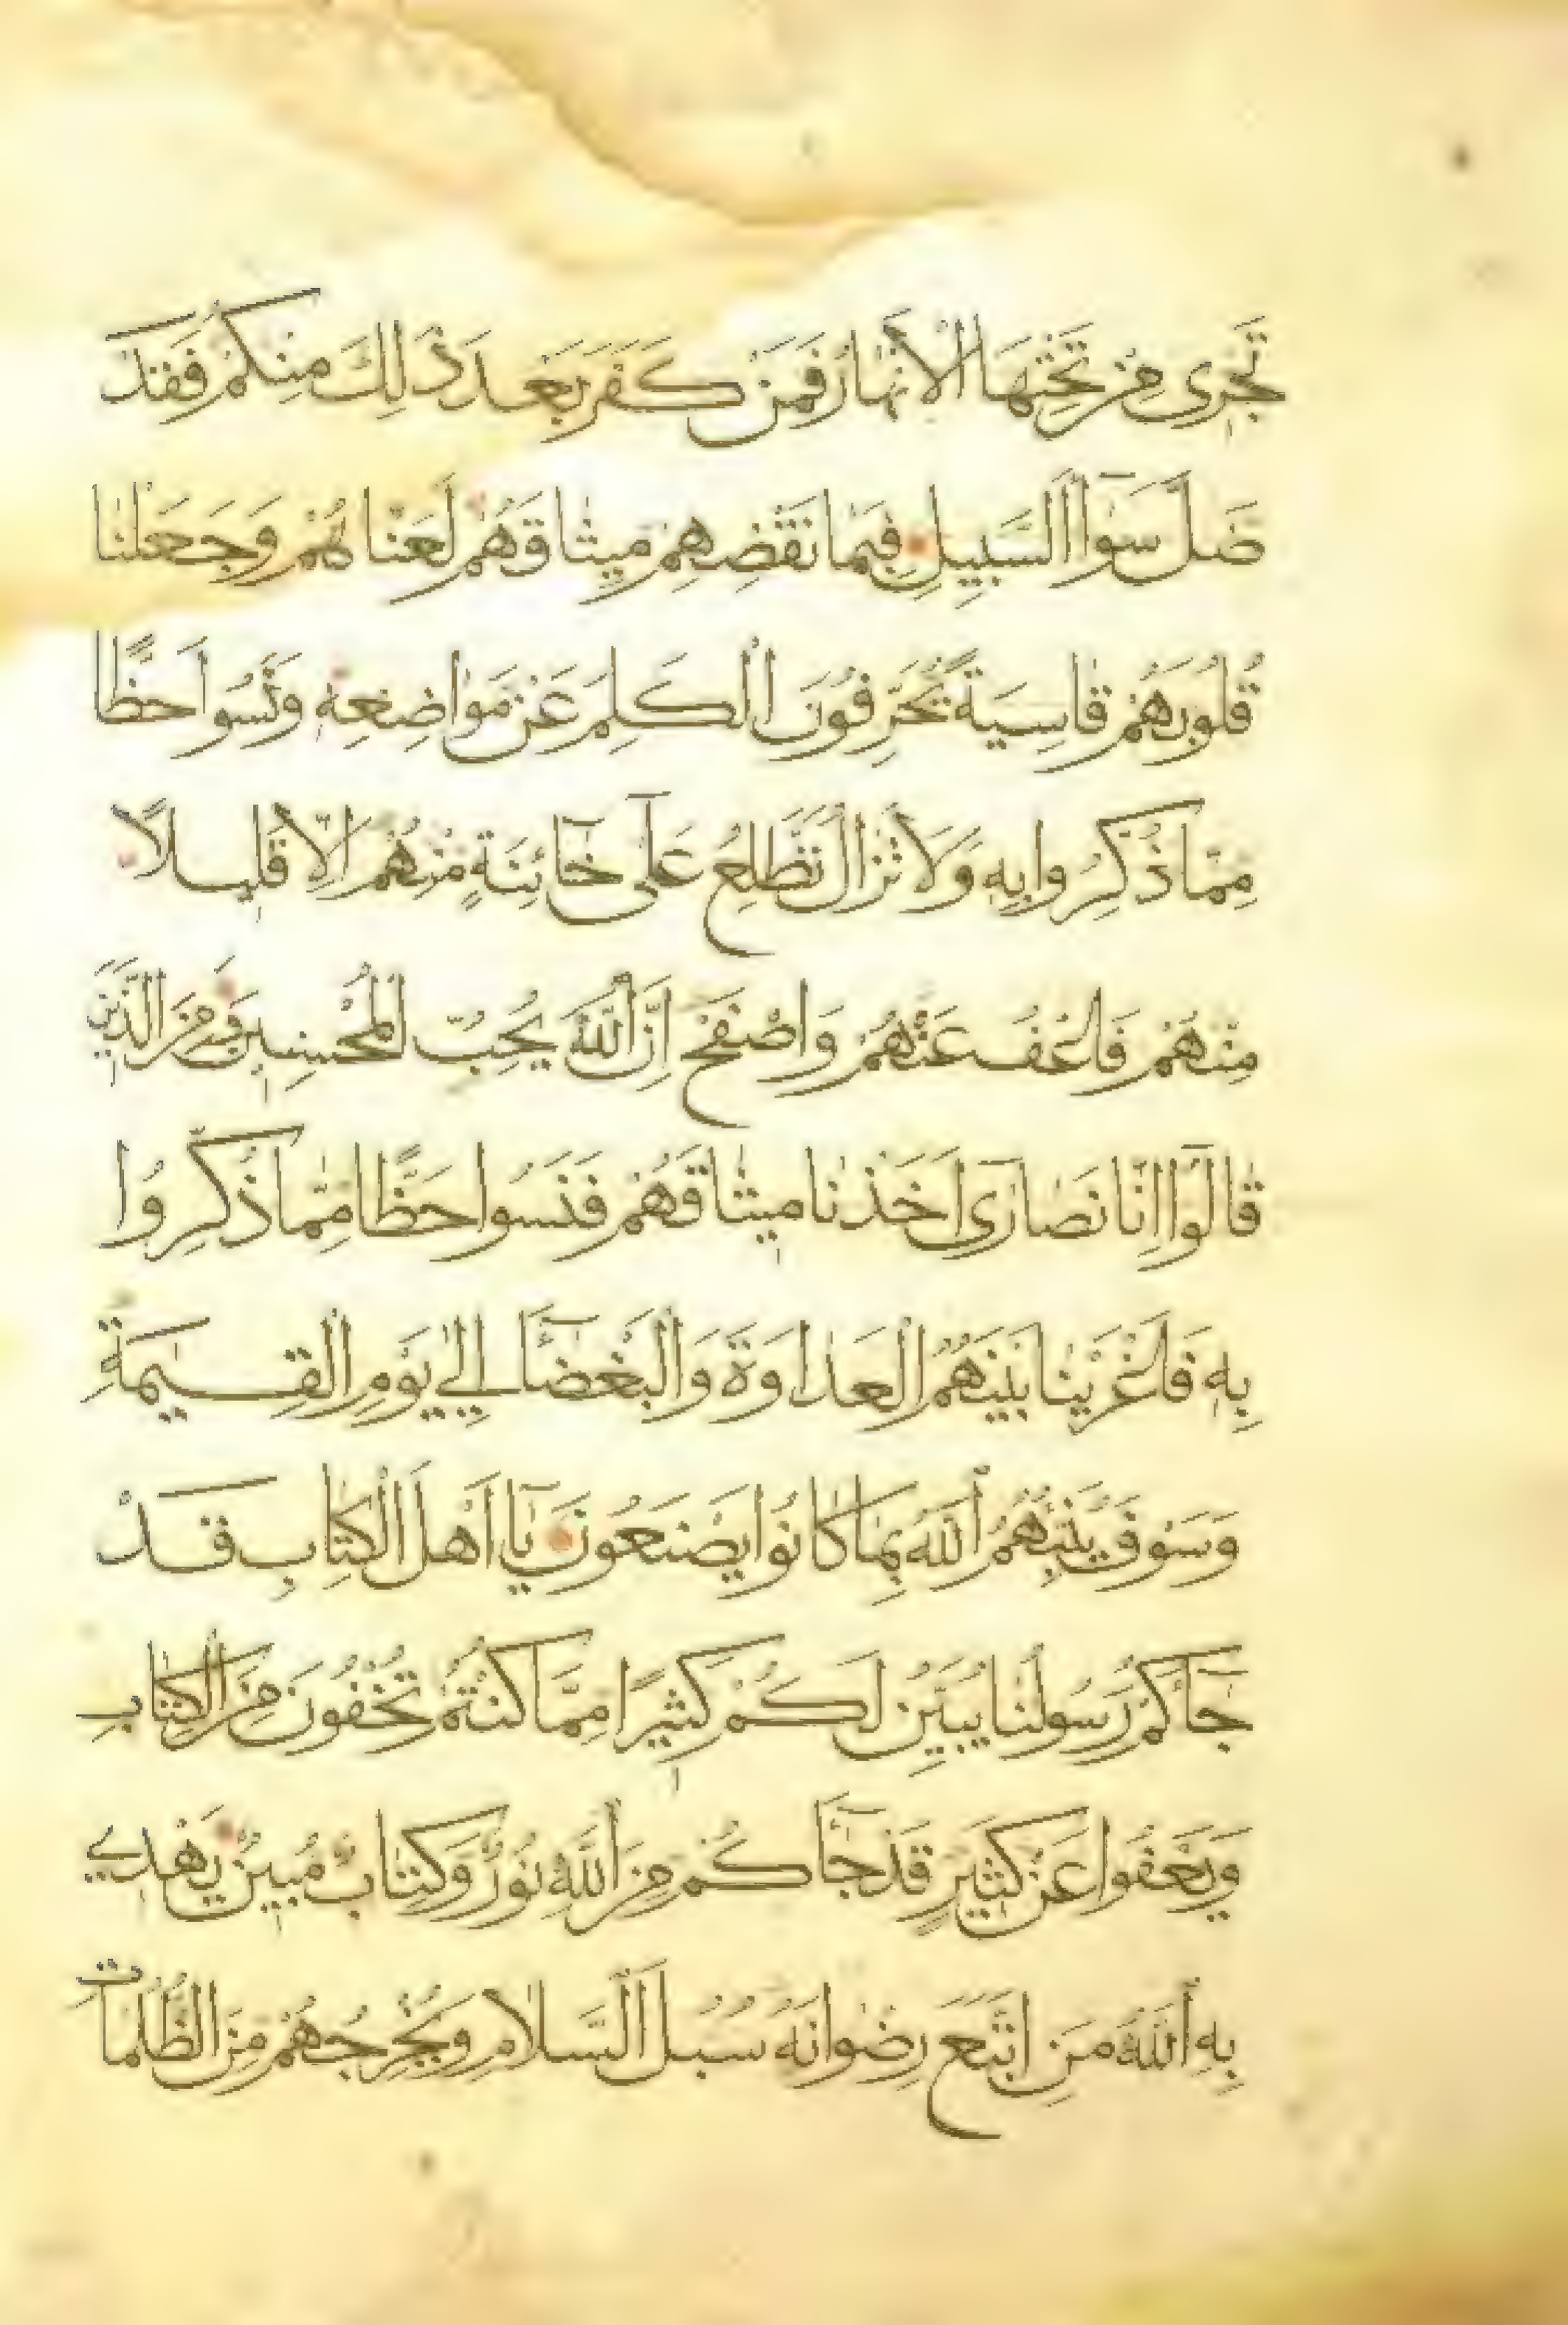 تَجْرِى مِنْ تَحْتِهَا الْاَنْهَارُ فَمَنْ كَفَرَ بَعْدَ ذٰلِكَ مِنْكُمْ فَقَدْ
ضَلَّ سَوَآءَ السَّبِيلِ فَبِمَا نَقْضِهِمْ مِيثَاقَهُمْ لَعَنَّاهُمْ وَجَعَلْنَا
قُلُوبَهُمْ قَاسِيَةً يُحَرِّفُونَ الْكَلِمَ عَنْ مَوَاضِعِهِ وَنَسُوا حَظًّا
مِمَّا ذُكِّرُوا بِهِ وَلَا تَزَالُ تَطَّلِعُ عَلَى خَآئِنَةٍ مِنْهُمْ اِلَّا قَلِيلًا
مِنْهُمْ فَاعْفُ عَنْهُمْ وَاصْفَحْ اِنَّ اللّٰهَ يُحِبُّ الْمُحْسِنِينَ وَمِنَ الَّذِينَ
قَالُوا اِنَّا نَصَارَى اَخَذْنَا مِيثَاقَهُمْ فَنَسُوا حَظًّا مِمَّا ذُكِّرُوا
بِهِ فَاَغْرَيْنَا بَيْنَهُمُ الْعَدَاوَةَ وَالْبَغْضَآءَ اِلٰى يَوْمِ الْقِيٰمَةِ
وَسَوْفَ يُنَبِّئُهُمُ اللّٰهُ بِمَا كَانُوا يَصْنَعُونَ يَآ اَهْلَ الْكِتَابِ قَدْ
جَآءَكُمْ رَسُولُنَا يُبَيِّنُ لَكُمْ كَثِيرًا مِمَّا كُنْتُمْ تُخْفُونَ مِنَ الْكِتَابِ
وَيَعْفُوا عَنْ كَثِيرٍ قَدْ جَآءَكُمْ مِنَ اللّٰهِ نُورٌ وَكِتَابٌ مُبِينٌ يَهْدِي
بِهِ اللّٰهُ مَنِ اتَّبَعَ رِضْوَانَهُ سُبُلَ السَّلَامِ وَيُخْرِجُهُمْ مِنَ الظُّلُمَاتِ